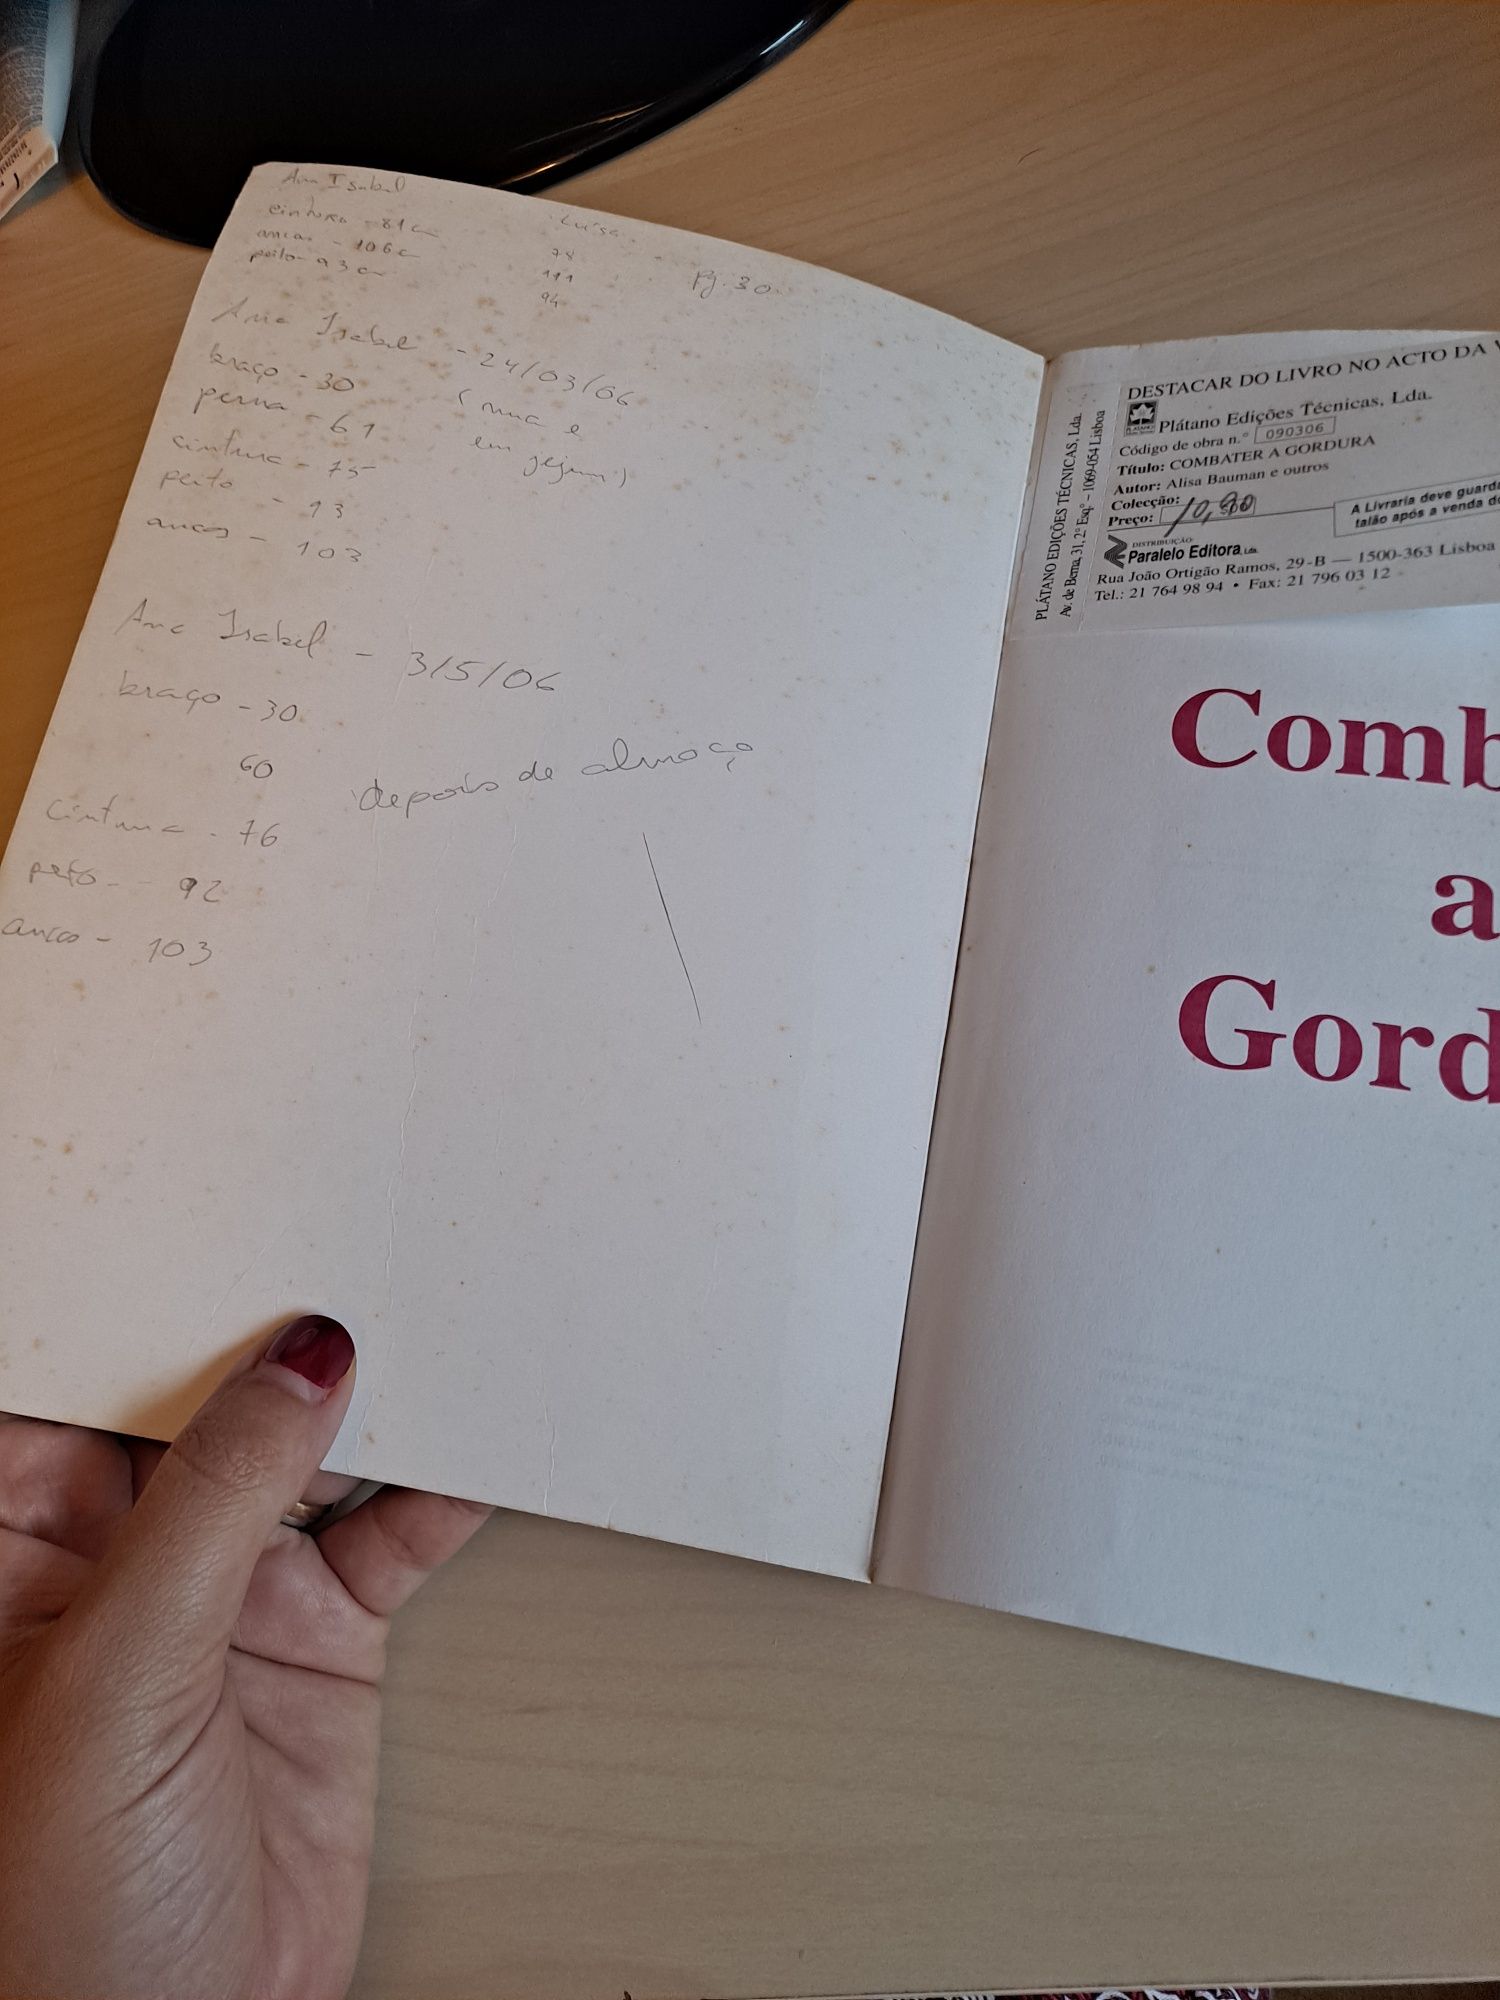 Ana Isabel
cintura - 81 c
ancas - 106 c
peito - 93 c
Luísa
78
111
94
Pg. 30
Ana Isabel - 24/03/06
braço - 30
(nua e
perna - 61
em jejum)
cintura - 75
peito - 93
ancas - 103
Ana Isabel - 3/5/06
braço - 30
60
depois de almoço
cintura - 76
peito - 92
ancas - 103
DESTACAR DO LIVRO NO ACTO DA V
PLÁTANO EDIÇÕES TÉCNICAS, Lda.
Av. de Berna, 31, 2.º Esq.º – 1069-054 Lisboa
Plátano Edições Técnicas, Lda.
Código de obra n.º 090306
Título: COMBATER A GORDURA
Autor: Alisa Bauman e outros
Colecção:
Preço: 10,90
A Livraria deve guarda
talão após a venda do
DISTRIBUIÇÃO:
Paralelo Editora, Lda.
Rua João Ortigão Ramos, 29-B — 1500-363 Lisboa
Tel.: 21 764 98 94 • Fax: 21 796 03 12
Comb
a
Gord